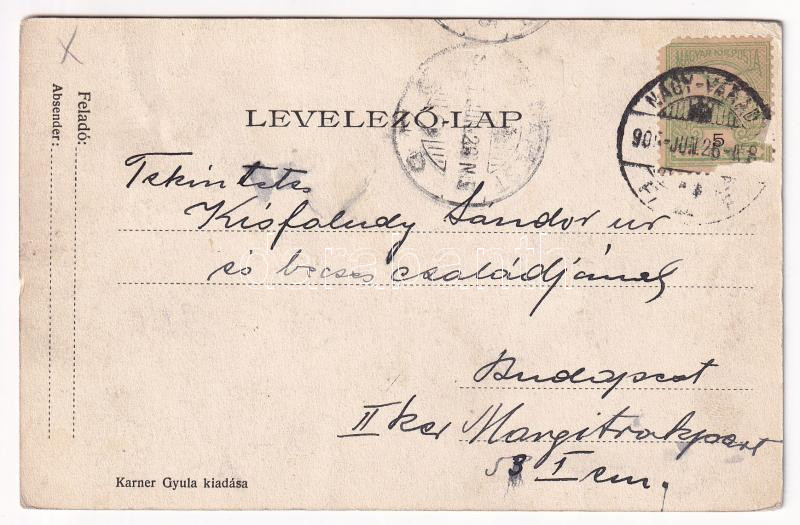 MAGYAR KIR. POSTA
NAGY-VÁRAD
5
905-JUN.26
LEVELEZŐ-LAP
Feladó:
Absender:
Tekintetes
Kisfaludy Sándor úr
és becses családjának
Budapest
II ker Margitrakpart
53 I em.
Karner Gyula kiadása